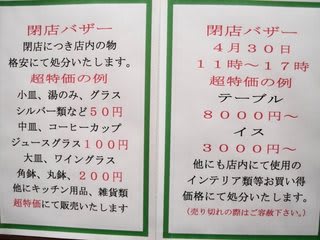 閉店バザー
閉店につき店内の物
格安にて処分いたします。
超特価の例
小皿、湯のみ、グラス
シルバー類など50円
中皿、コーヒーカップ
ジュースグラス100円
大皿、ワイングラス
角鉢、丸鉢、200円
他にキッチン用品、雑貨類
超特価にて販売いたします
閉店バザー
4月30日
11時〜17時
超特価の例
テーブル
8000円〜
イス
3000円〜
他にも店内にて使用の
インテリア類等お買い得
価格にて処分いたします。
(売り切れの際はご容赦下さい。)